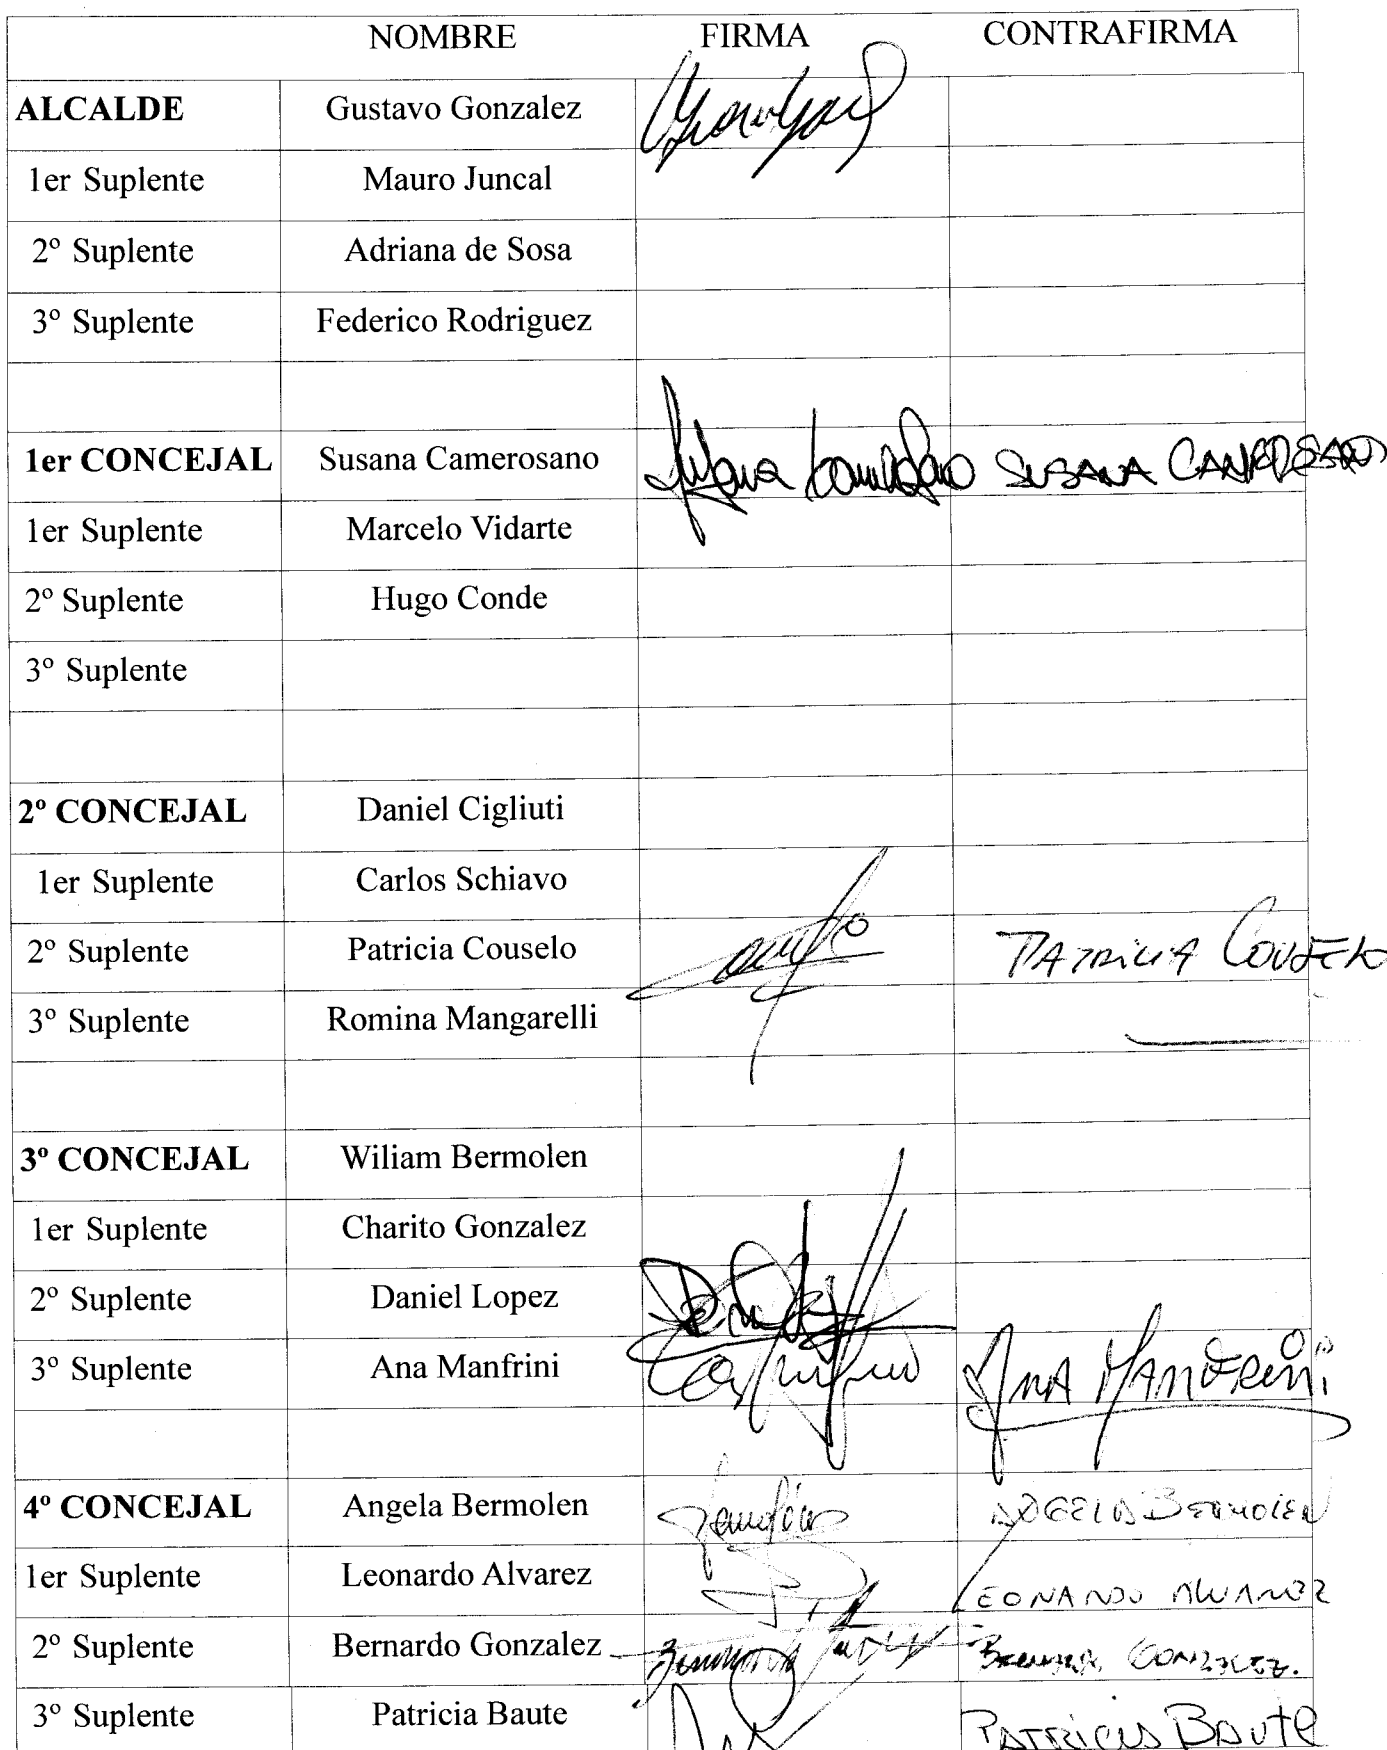 NOMBRE FIRMA CONTRAFIRMA
ALCALDE Gustavo Gonzalez
1er Suplente Mauro Juncal
2º Suplente Adriana de Sosa
3º Suplente Federico Rodriguez
1er CONCEJAL Susana Camerosano Susana Camerosano SUSANA
1er Suplente Marcelo Vidarte
2º Suplente Hugo Conde
3º Suplente
2º CONCEJAL Daniel Cigliuti
1er Suplente Carlos Schiavo
2º Suplente Patricia Couselo PATRICIA COUSELO
3º Suplente Romina Mangarelli
3º CONCEJAL Wiliam Bermolen
1er Suplente Charito Gonzalez
2º Suplente Daniel Lopez
3º Suplente Ana Manfrini ANA MANFRINI
4º CONCEJAL Angela Bermolen ANGELA BERMOLEN
1er Suplente Leonardo Alvarez LEONARDO ALVAREZ
2º Suplente Bernardo Gonzalez BERNARDO GONZALEZ.
3º Suplente Patricia Baute PATRICIA BAUTE